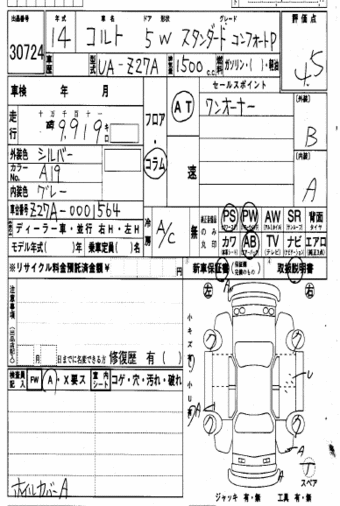 出品番号 年式 車名 ドア 形状 グレード 評価点
30724 14 コルト 5 W スタンダード コンフォートP 4.5
車歴 型式 UA-Z27A 排気量 1500 c.c. 燃料 ガソリン・( )・軽油
車検 年 月 セールスポイント
ワンオーナー
(外装)
B
(内装)
A
走行 十万 千 百 十
9,919 キロ
フロア・コラム
AT
速
外装色 シルバー
カラーNo. A19
内装色 グレー
車台番号 Z27A-0001564
ディーラー車・並行 右H・左H
モデル年式( )年 乗車定員( )名
冷房 A/C
無
のみ
丸印
PS PW AW SR 背面
タイヤ
カワ AB TV ナビ エアロ
(テレビ)
※リサイクル料金預託済金額¥ 円
新車保証書 取扱説明書
注意事項
月 日までに名変できる方
修復歴 有( )
小キズ有
小U有
右 左
検査員記入 FW A・X要ス 室内シート コゲ・穴・汚れ・破れ
ホイルカバーA
U
A
A
スペア
ジャッキ 有・無 工具 有・無